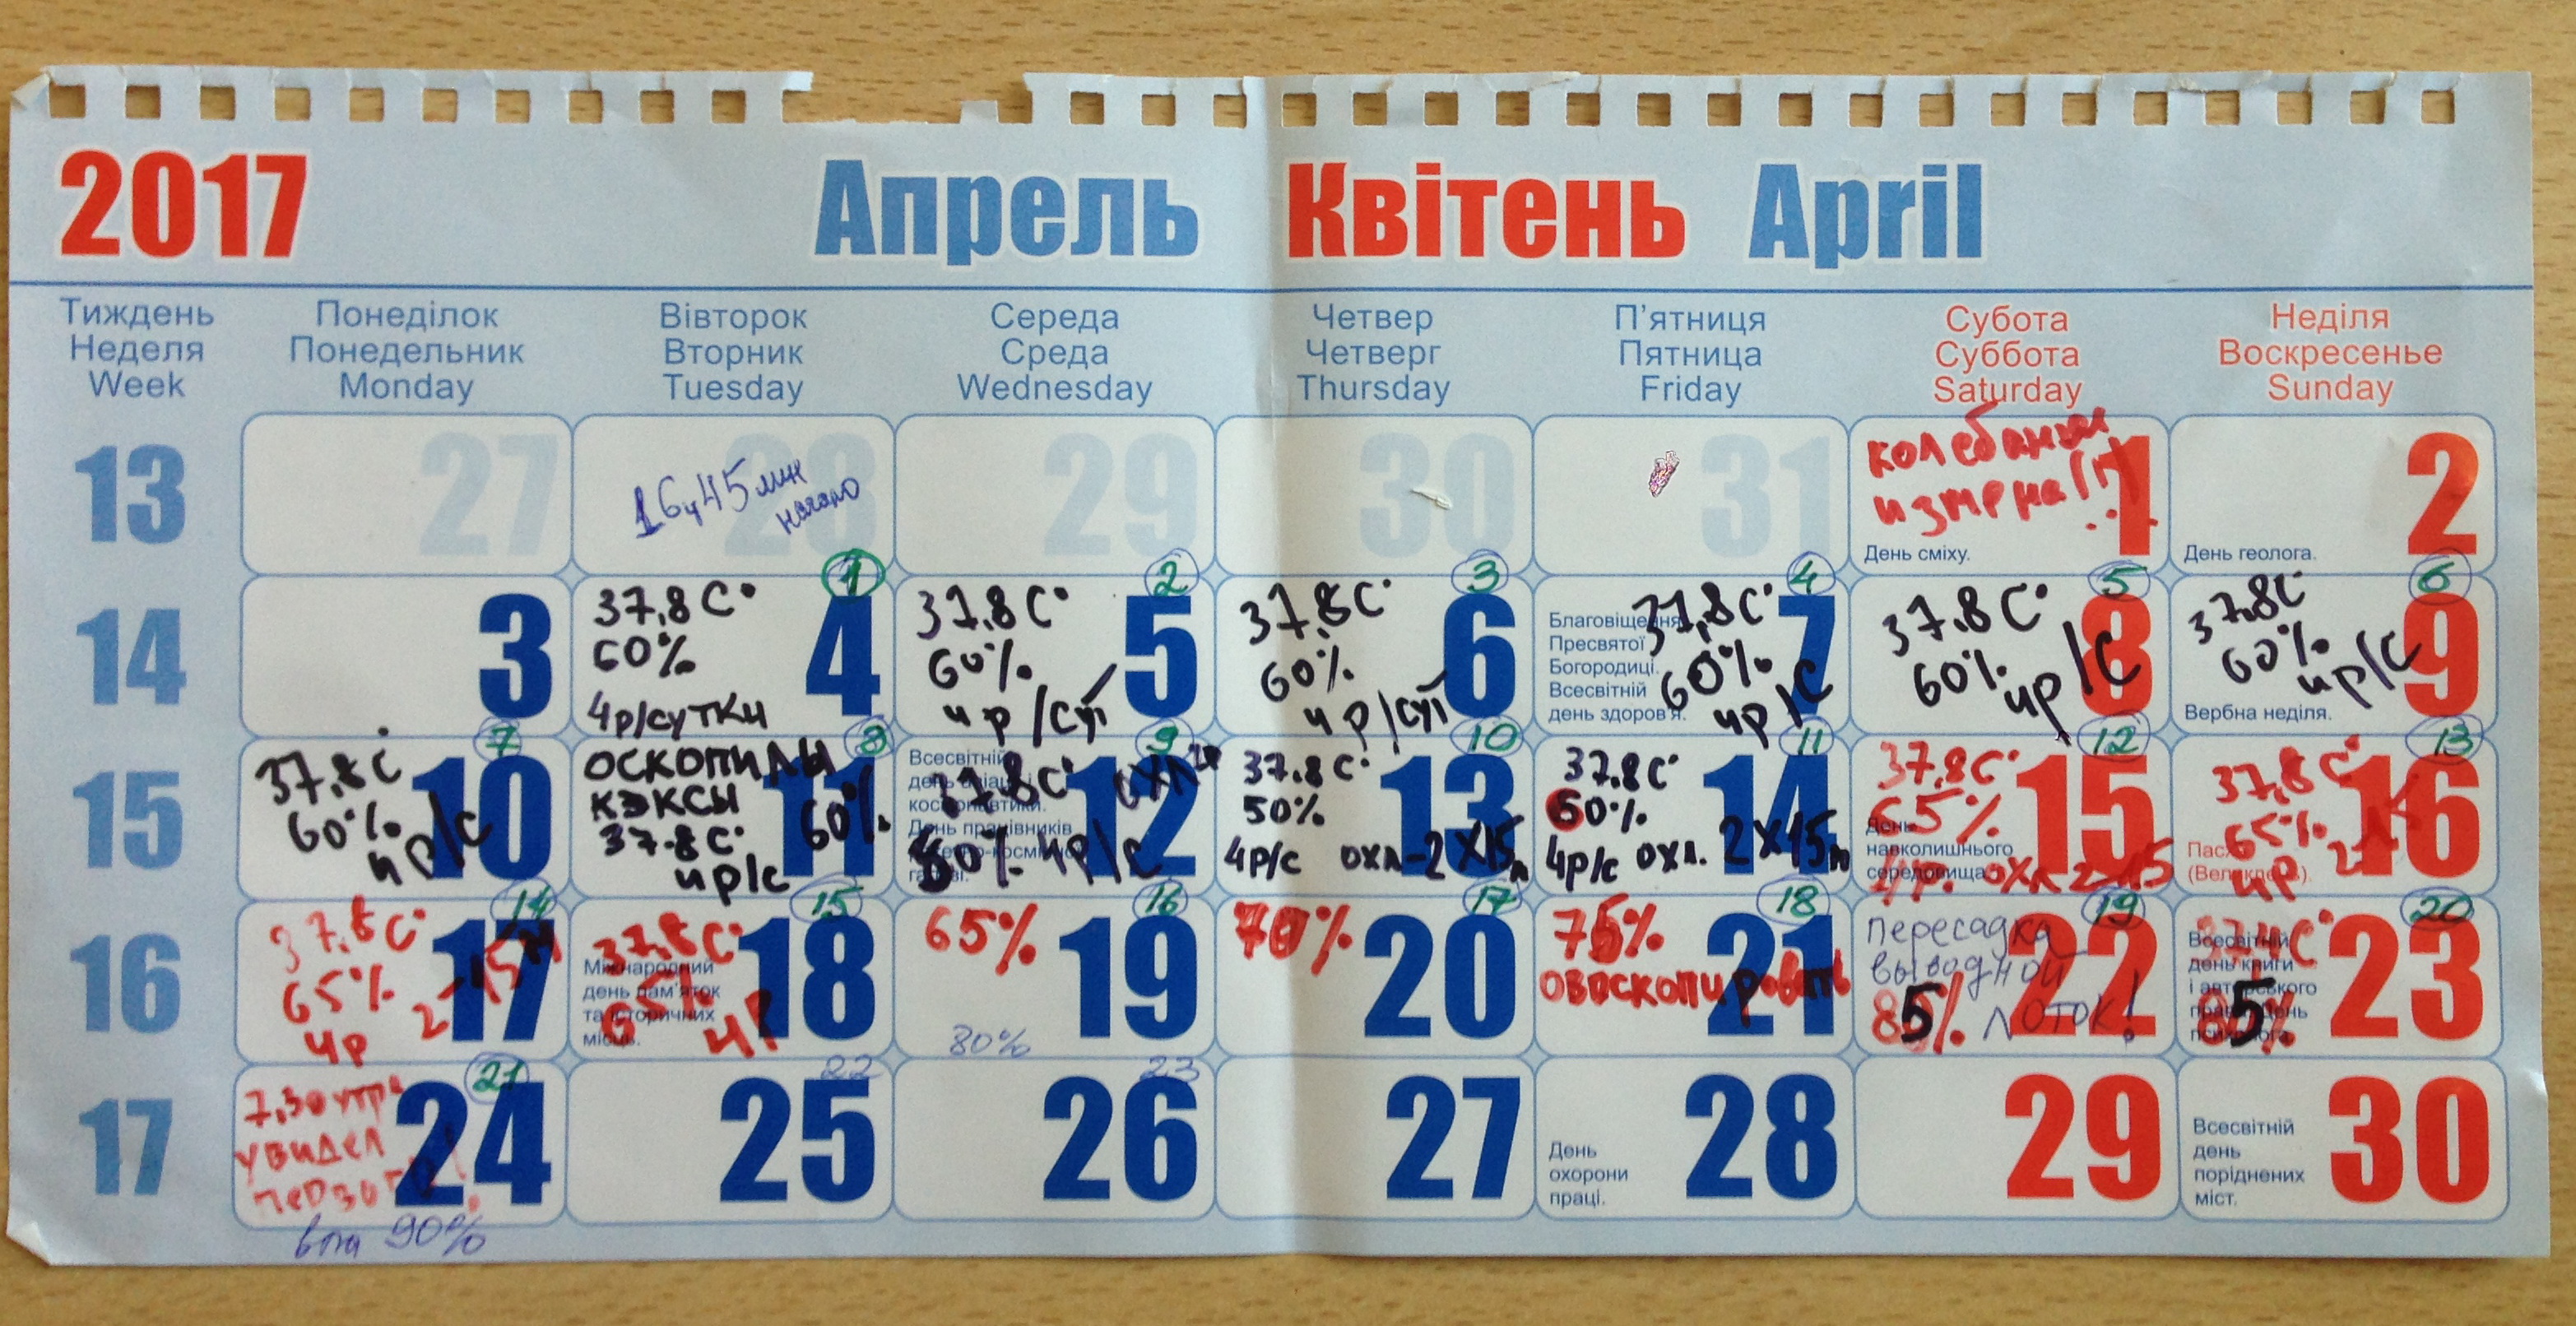 2017 Апрель Квітень April
Тиждень
Неделя
Week
Понеділок
Понедельник
Monday
Вівторок
Вторник
Tuesday
Середа
Среда
Wednesday
Четвер
Четверг
Thursday
П'ятниця
Пятница
Friday
Субота
Суббота
Saturday
Неділя
Воскресенье
Sunday
13
27
28
16ч45мин
начало
29
30
31
1
День сміху.
2
День геолога.
14
3
4
1
37.8 С°
60%
4р/сутки
5
2
37.8 С°
60%
4р/сут
6
3
37.8 С°
60%
4р/сут
7
4
Благовіщення
Пресвятої
Богородиці.
Всесвітній
день здоров'я.
37,8 С°
60%
4р/С
8
5
37.8 С°
60%
4р/С
9
6
37.8С
60%
4р/С
Вербна неділя.
15
10
7
37.8 С
60%
4р/С
11
8
37.8 С°
60%
4р/С
12
9
Всесвітній
37.8С°
4р/с
13
10
37.8 С°
50%
4р/с охл-2х15
14
11
37.8С°
4р/с охл. 2х15м
15
12
37.8С°
65%
День
навколишнього
середовища
4р. охл 2х15
16
13
37,8 С°
65%
4р
16
17
14
37.8 С°
65%
4р
18
15
37.8 С°
Міжнародний
день пам'яток
та історичних
місць.
4р
19
16
65%
80%
20
17
70%
21
18
75%
22
19
пересадка
выводной
лоток!
85%
23
20
Всесвітній
день книги
17
24
21
7,30 утра
увидел
90%
25
22
26
23
27
28
День
охорони
праці.
29
30
Всесвітній
день
поріднених
міст.